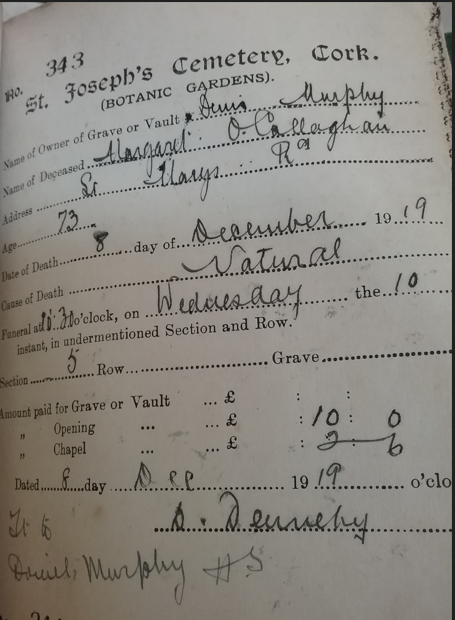 No. 343
St. Joseph's Cemetery, Cork.
(BOTANIC GARDENS).
Name of Owner of Grave or Vault Denis Murphy
Name of Deceased Margaret O'Callaghan
Address St Marys Rd
Age 73
Date of Death 8 day of December 1919
Cause of Death Natural
Funeral at 10.30 o'clock, on Wednesday the 10
instant, in undermentioned Section and Row.
Section 5 Row Grave
Amount paid for Grave or Vault ... £ : :
„ Opening ... ... £ : 10 : 0
„ Chapel ... ... £ : 2 : 6
Dated 8 day Dec 1919 o'clo
D. Dennehy
Daniel Murphy